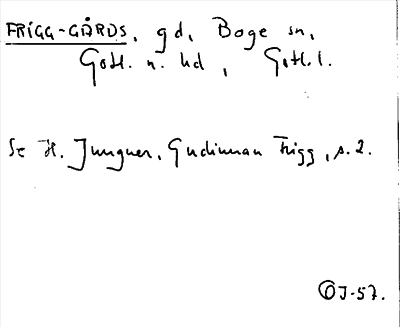 FRIGG-GÅRDS, gd, Boge sn,
Gotl. n. hd, Gotl. l.
Se H. Jungner, Gudinnan Frigg, s. 2.
J-57.